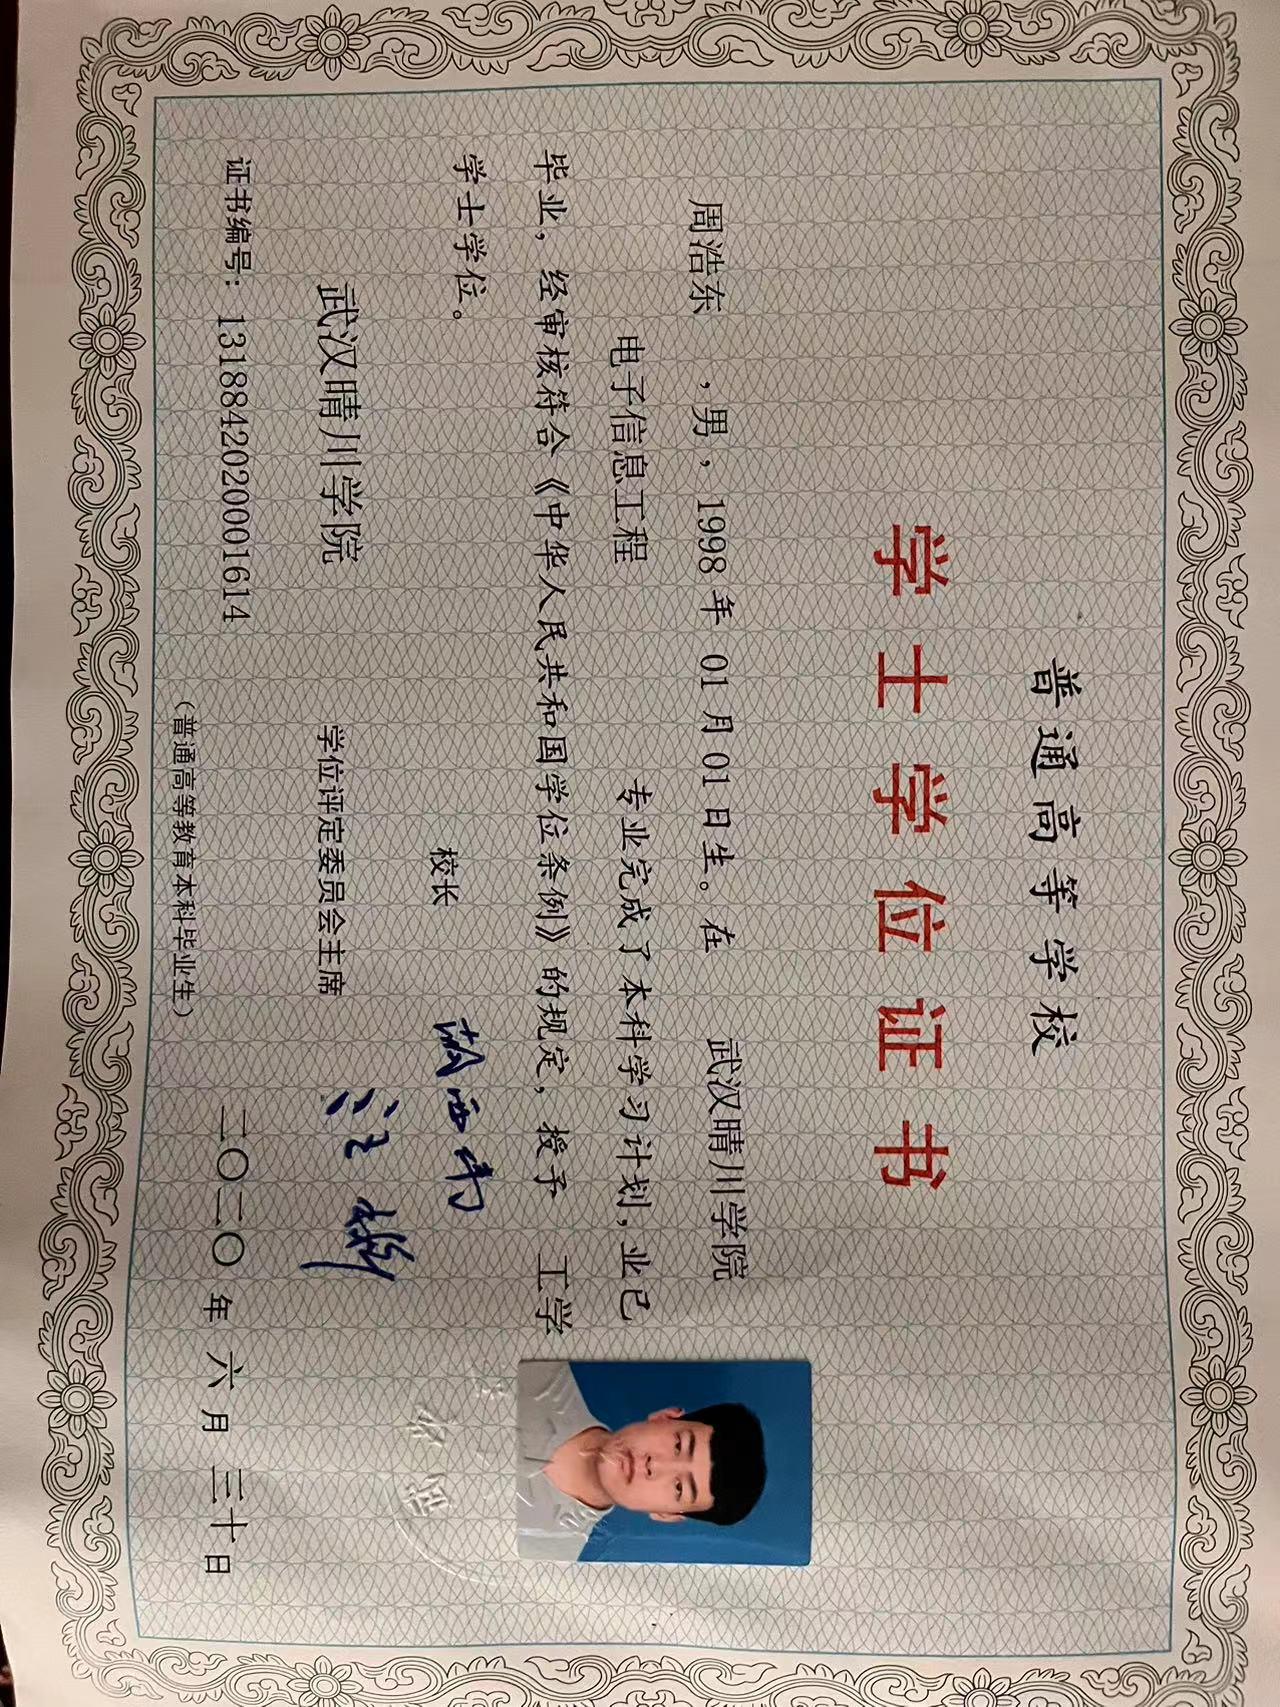 普通高等学校
学士学位证书
周浩东 ,男, 1998 年 01 月 01 日生。在 武汉晴川学院
电子信息工程 专业完成了本科学习计划,业已
毕业，经审核符合《中华人民共和国学位条例》的规定，授予 工学
学士学位。
校长
武汉晴川学院 学位评定委员会主席
证书编号：1318842020001614 二〇二〇 年 六 月 三十 日
（普通高等教育本科毕业生）